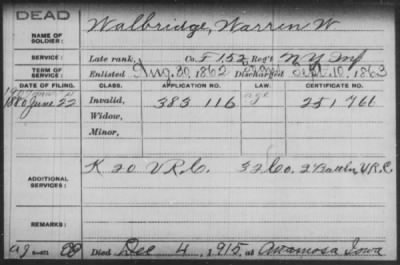 DEAD
NAME OF SOLDIER: Walbridge, Warren W
SERVICE: Late rank, Co. F 152 Reg't N Y Inf
TERM OF SERVICE: Enlisted Aug. 30, 1862 Discharged Sept. 10, 1863
DATE OF FILING. CLASS. APPLICATION NO. LAW. CERTIFICATE NO.
1880 June 22 Invalid, 383 116 age 251 766
Widow,
Minor,
ADDITIONAL SERVICES: K 20 V R C. 52 Co. 2 Battln V.R.C.
REMARKS:
Died Dec 4, 1915, at Anamosa Iowa